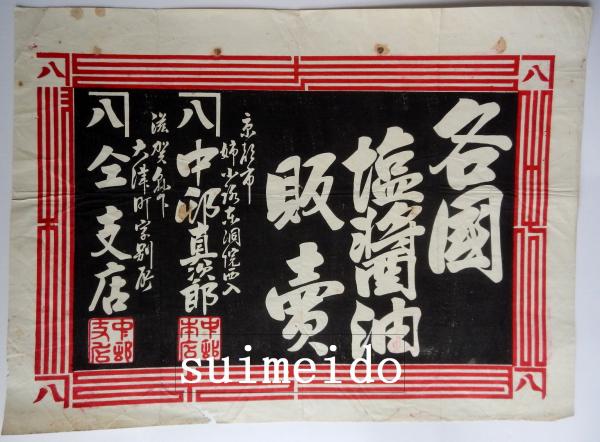 各國
塩醬油
販賣
京都市
姉小路東洞院西入
八 中邨真次郎
中邨本店
滋賀縣下
大津町字別所
八 仝支店
中邨支店
八
八
八
八
suimeido